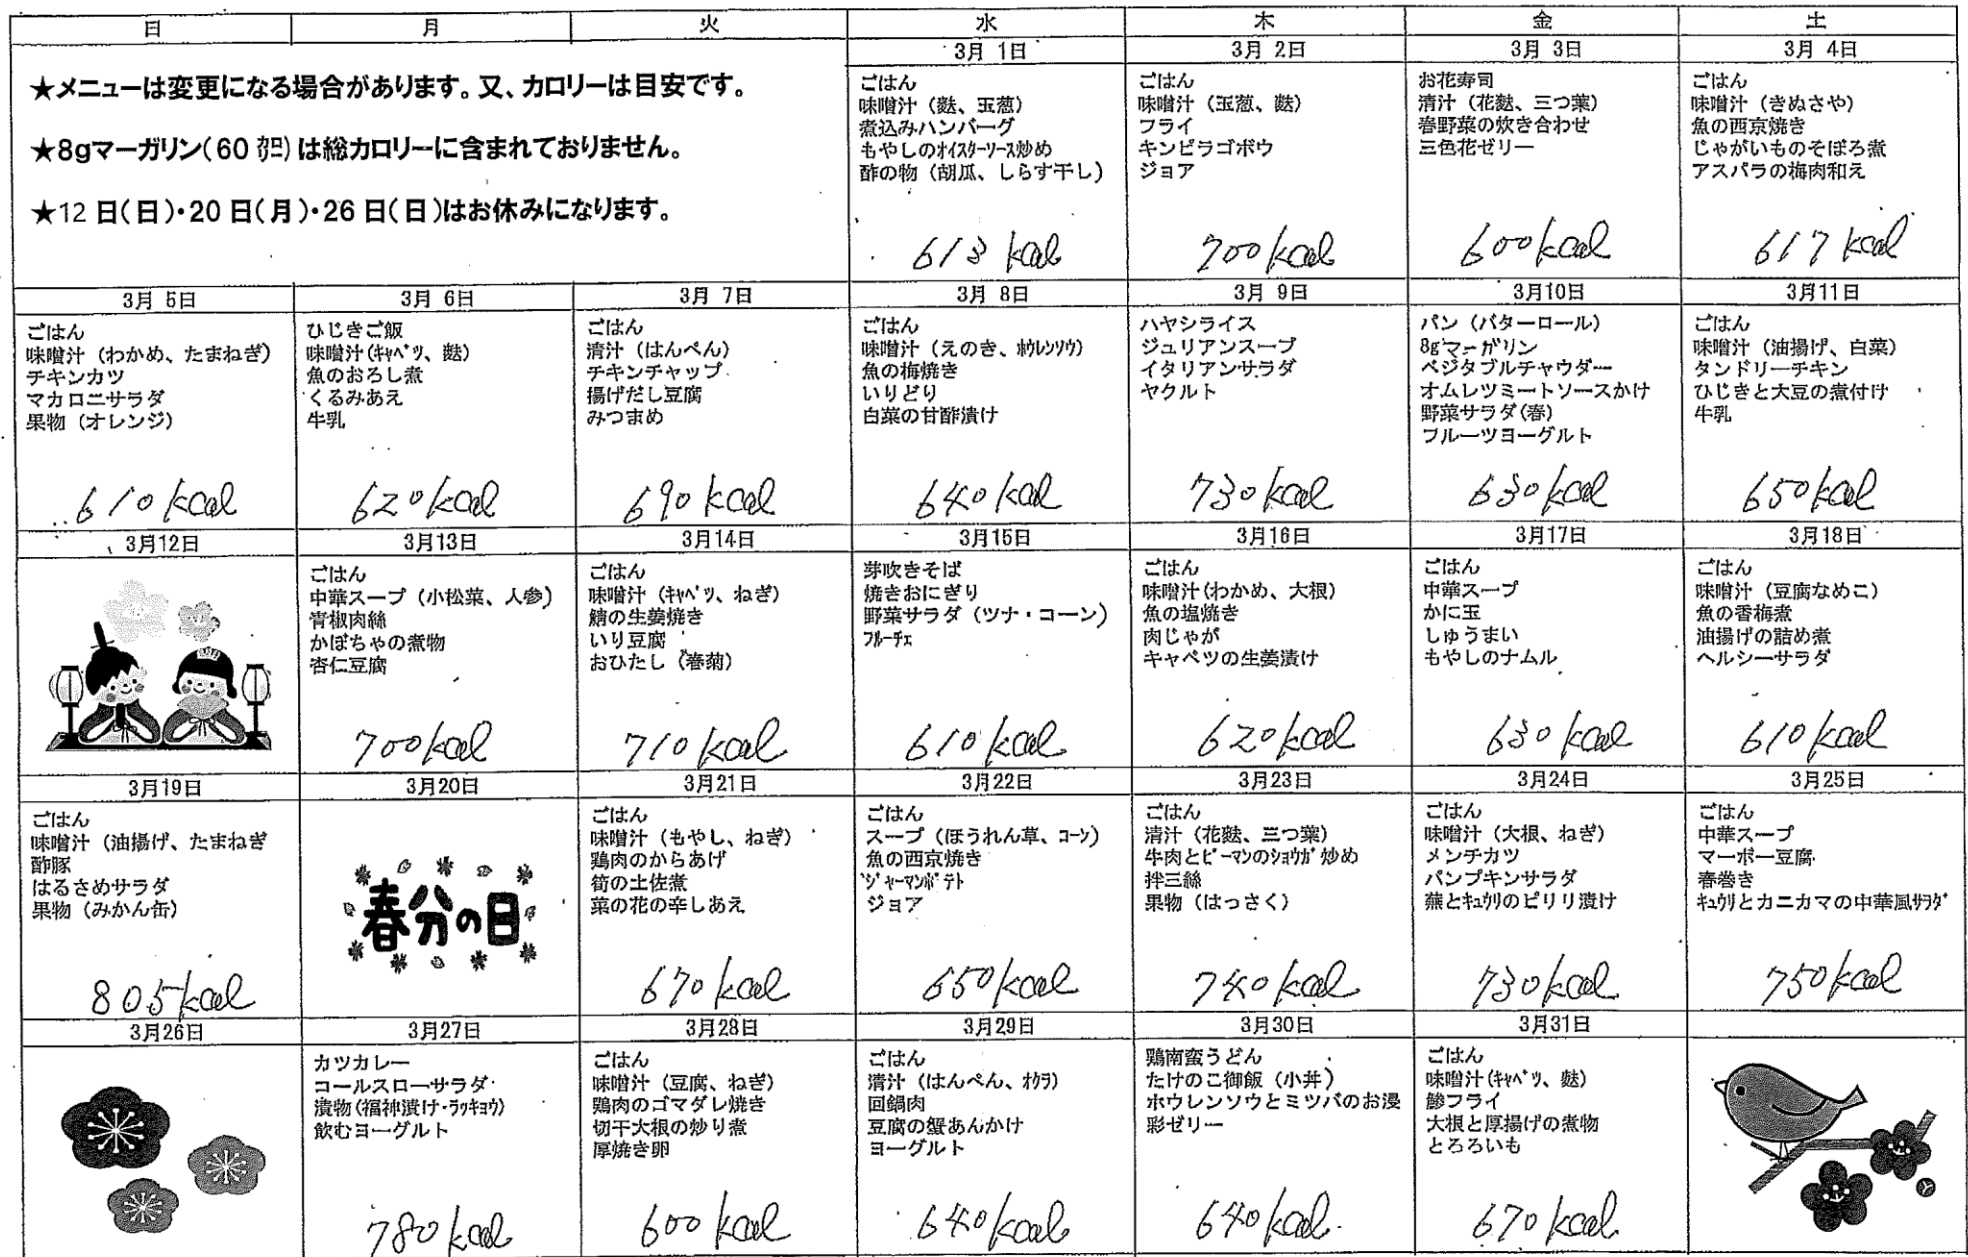 日 月 火 水 木 金 土
★メニューは変更になる場合があります。又、カロリーは目安です。
★8gマーガリン(60㌍)は総カロリーに含まれておりません。
★12日(日)・20日(月)・26日(日)はお休みになります。
3月 1日
ごはん
味噌汁（麩、玉葱）
煮込みハンバーグ
もやしのオイスターソース炒め
酢の物（胡瓜、しらす干し）
613 kcal
3月 2日
ごはん
味噌汁（玉葱、麩）
フライ
キンピラゴボウ
ジョア
700 kcal
3月 3日
お花寿司
清汁（花麩、三つ葉）
春野菜の炊き合わせ
三色花ゼリー
600 kcal
3月 4日
ごはん
味噌汁（きぬさや）
魚の西京焼き
じゃがいものそぼろ煮
アスパラの梅肉和え
617 kcal
3月 5日
ごはん
味噌汁（わかめ、たまねぎ）
チキンカツ
マカロニサラダ
果物（オレンジ）
610 kcal
3月 6日
ひじきご飯
味噌汁(キャベツ、麩)
魚のおろし煮
くるみあえ
牛乳
620 kcal
3月 7日
ごはん
清汁（はんぺん）
チキンチャップ
揚げだし豆腐
みつまめ
690 kcal
3月 8日
ごはん
味噌汁（えのき、ホウレンソウ）
魚の梅焼き
いりどり
白菜の甘酢漬け
640 kcal
3月 9日
ハヤシライス
ジュリアンスープ
イタリアンサラダ
ヤクルト
730 kcal
3月10日
パン（バターロール）
8gマーガリン
ベジタブルチャウダー
オムレツミートソースかけ
野菜サラダ(春)
フルーツヨーグルト
630 kcal
3月11日
ごはん
味噌汁（油揚げ、白菜）
タンドリーチキン
ひじきと大豆の煮付け
牛乳
650 kcal
3月12日
3月13日
ごはん
中華スープ（小松菜、人参）
青椒肉絲
かぼちゃの煮物
杏仁豆腐
700 kcal
3月14日
ごはん
味噌汁（キャベツ、ねぎ）
鯖の生姜焼き
いり豆腐
おひたし（春菊）
710 kcal
3月15日
芽吹きそば
焼きおにぎり
野菜サラダ（ツナ・コーン）
フルーチェ
610 kcal
3月16日
ごはん
味噌汁(わかめ、大根）
魚の塩焼き
肉じゃが
キャベツの生姜漬け
620 kcal
3月17日
ごはん
中華スープ
かに玉
しゅうまい
もやしのナムル
630 kcal
3月18日
ごはん
味噌汁（豆腐なめこ）
魚の香梅煮
油揚げの詰め煮
ヘルシーサラダ
610 kcal
3月19日
ごはん
味噌汁（油揚げ、たまねぎ
酢豚
はるさめサラダ
果物（みかん缶）
805 kcal
3月20日
春分の日
3月21日
ごはん
味噌汁（もやし、ねぎ）
鶏肉のからあげ
筍の土佐煮
菜の花の辛しあえ
670 kcal
3月22日
ごはん
スープ（ほうれん草、コーン）
魚の西京焼き
ジャーマンポテト
ジョア
650 kcal
3月23日
ごはん
清汁（花麩、三つ葉）
牛肉とピーマンのショウガ炒め
拌三絲
果物（はっさく）
740 kcal
3月24日
ごはん
味噌汁（大根、ねぎ）
メンチカツ
パンプキンサラダ
蕪とキュウリのピリリ漬け
730 kcal
3月25日
ごはん
中華スープ
マーボー豆腐
春巻き
キュウリとカニカマの中華風サラダ
750 kcal
3月26日
3月27日
カツカレー
コールスローサラダ
漬物(福神漬け・ラッキョウ)
飲むヨーグルト
780 kcal
3月28日
ごはん
味噌汁（豆腐、ねぎ）
鶏肉のゴマダレ焼き
切干大根の炒り煮
厚焼き卵
600 kcal
3月29日
ごはん
清汁（はんぺん、オクラ）
回鍋肉
豆腐の蟹あんかけ
ヨーグルト
640 kcal
3月30日
鶏南蛮うどん
たけのこ御飯（小丼）
ホウレンソウとミツバのお浸
彩ゼリー
640 kcal
3月31日
ごはん
味噌汁(キャベツ、麩）
鯵フライ
大根と厚揚げの煮物
とろろいも
670 kcal